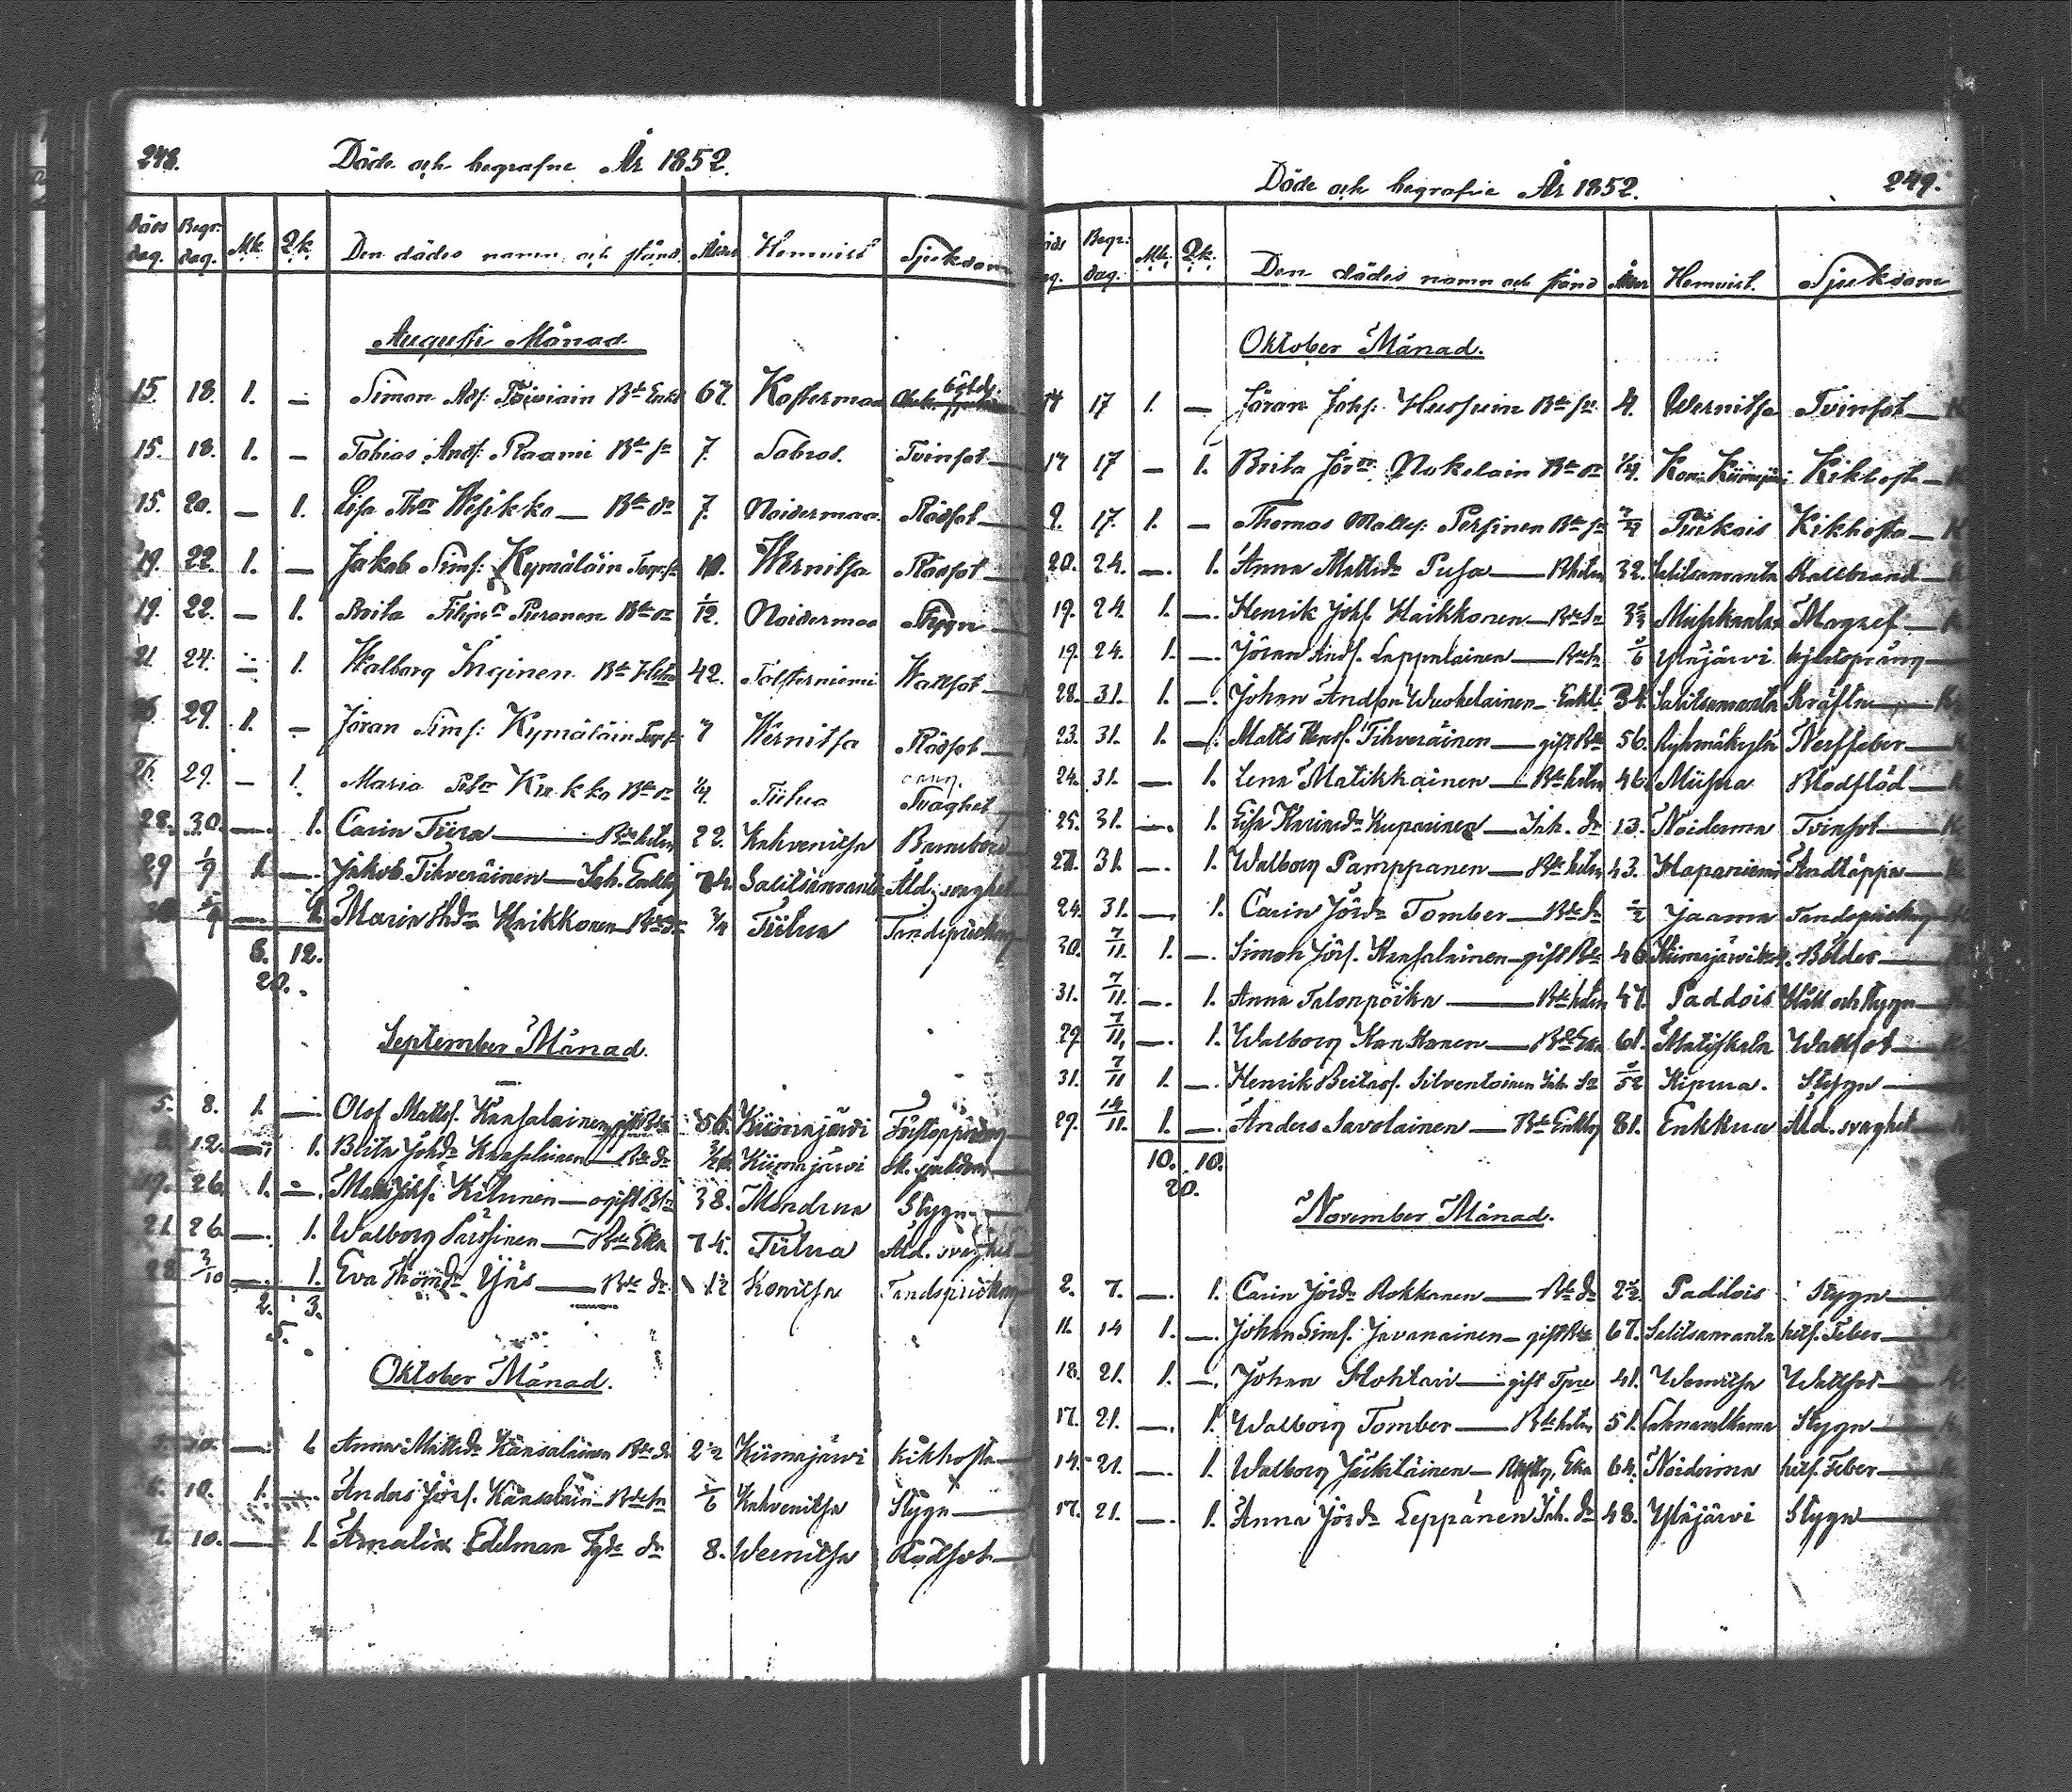 248. Döde och begrafne År 1852.
Döds dag. Begr: dag. Mk. Qk. Den dödes namn och stånd Ålder Hemvist Sjukdom
Augusti Månad.
15. 18. 1. — Simon Ads: Bde Enkl 67. Kostermaa
15. 18. 1. — Tobias Ands: Raami Bde sn 7. Sabros. Tvinsot —
15. 20. — 1. Lisa Thdr Wesikko — Bde dr 7. Noidermaa Rödsot —
19. 22. 1. — Jakob Sims: Kymäläin 10. Wernitsa Rödsot —
19. 22. — 1. Brita Filipsdr Puronen Bde dr 1/12. Noidermaa Stygn —
21. 24. — 1. Walborg Inginen Bde Hstru 42. Tolsterniemi Wattsot —
26. 29. 1. — Jöran Sims: Kymäläin 7 Wernitsa Rödsot —
26. 29. — 1. Maria Kukko Bde dr 1/4. Tiilua Svaghet
28. 30. — 1. Carin Tiira — Bde hstru 22. Kahvenitsa Barnsbörd
29 1/9 1. — Jakob Tihveräinen — Inh. Enkling 74. Salitsanranta Åld. svaghet
— 1. Maria Haikkonen Bde dr 3/4 Tiilua Tandsprickning
8. 12.
20.
September Månad.
5. 8. 1. — Olof Matts. Kansalainen gift Bde 56. Kiimajärvi Förstoppning
12. — 1. Brita Johdr Kansalainen — Bde dr Kiimajärvi
19. 26. 1. — Matts Kilunen — ogift Bde 38. Mondrua Stygn —
21. 26. — 1. Walborg Pärssinen — Bde Eka 74. Tiilua Åld. svaghet
28. 3/10 — 1. Eva Thomdr Yjäs — Bde dr 1 1/2 Konitsa Tandsprickning
2. 3.
5.
Oktober Månad.
10. — 1. Anna Mattsdr Kansalainen Bde dr 2 1/2 Kiimajärvi Kikhosta —
6. 10. 1. — Anders Jörs. Kansalain — Bde sn 1/6 Kahvenitsa Stygn —
7. 10. — 1. Amalia Edelman dr 8. Wernitsa Rödsot —
Döde och begrafne År 1852. 249.
Begr: dag. Mk. Qk. Den dödes namn och stånd Ålder Hemvist. Sjukdom
Oktober Månad.
14 17 1. — Jöran Johs: Hussuin Bde sn 4. Wernitsa Tvinsot —
14 17 — 1. Brita Jördr Nokelain Bde dr 1/4. Kikhosta —
9. 17. 1. — Thomas Matts: Persinen Bde sn Tiikois Kikhosta —
20. 24. — 1. Anna Mattsdr Pusa — Bhstru 32. Salitsanranta Kallbrand —
19. 24. 1. — Henrik Johs. Haikkonen — Bde sn Muskanlax Magref —
19. 24. 1. — Jöran Ands. Lappalainen — Bde sn Yläjärvi
28. 31. 1. — Johan Andson Wuokelainen — Enkl. 34. Salitsanranta Kräftan —
23. 31. 1. — Matts Hens. Tihveräinen — gift Bde 56. Ryhmäkylä Nerffeber —
24. 31. — 1. Lena Matikkainen — Bde hstru 46. Miisua Blodflöd —
25. 31. — 1. Lisa Karinsdr Kuparinen — Inh. dr 13. Noiderma Tvinsot —
27. 31. — 1. Walborg Pamppanen — Bde hstru 43. Haparniemi Andtäppa —
24. 31. — 1. Carin Jördr Tomber — Bde dr 1/2 Jaama Tandsprickning
30. 7/11. 1. — Simon Jörs. Kansalainen — gift Bde 46 Kiimajärvi Bölder —
31. 7/11. — 1. Anna Talonpoika — Bde hstru 47. Paddois Håll och stygn —
29 7/11. — 1. Walborg Kankanen — Bde Eka 61. Matiskala Wattsot —
31. 7/11 1. — Henrik Beitaos. Silventoinen Inh. Sn /52 Kipura. Stygn —
29. 14/11. 1. — Anders Savolainen — Bde Enkling 81. Enkkua Åld. svaghet —
10. 10.
20.
November Månad.
2. 7. — 1. Carin Jördr Rokkanen — Bde dr 2 1/2. Paddois Stygn —
11. 14 1. — Johan Sims. Javanainen — gift Bde 67. Salitsanranta hets. Feber —
18. 21. 1. — Johan Hohtari — gift 41. Wernitsa Wattsot —
17. 21. — 1. Walborg Tomber — Bde hstru 51. Stygn —
14. 21. — 1. Walborg Jäskiläinen — Eka 64. Noiderma hets. Feber —
17. 21. — 1. Anna Jördr Leppänen Inh. dr 48. Yläjärvi Stygn —